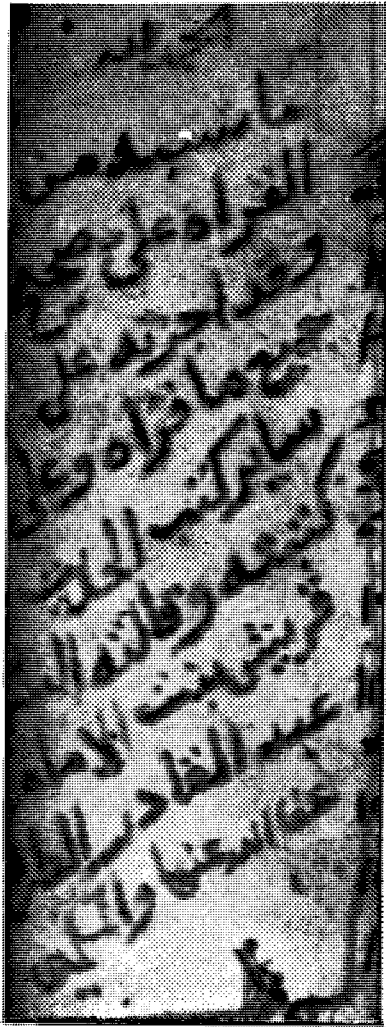 ما نسب له من
القراه على صحيح
وقد اجزته على
جميع ما قراه وعلى
ساير كتب الحديث
كتبته وقالته
قريش بنت الامام
عبد القادر الطبري
عفا الله عنها